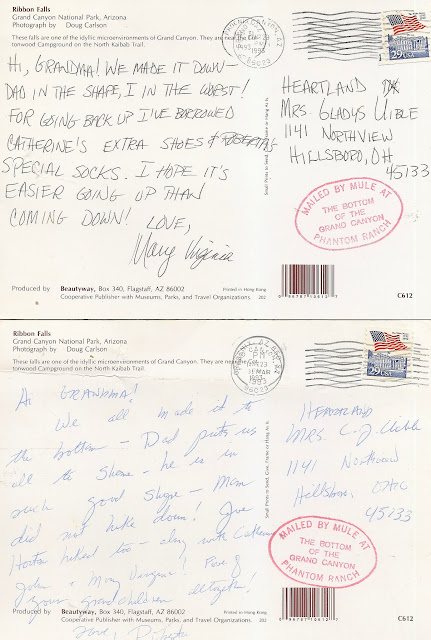 Ribbon Falls
Grand Canyon National Park, Arizona
Photograph by Doug Carlson
These falls are one of the idyllic microenvironments of Grand Canyon. They are near the Cottonwood Campground on the North Kaibab Trail.
HI, GRANDMA! WE MADE IT DOWN-
DAD IN THE SHAPE, I IN THE WORST!
FOR GOING BACK UP I'VE BORROWED
CATHERINE'S EXTRA SHOES & ROBERTA'S
SPECIAL SOCKS. I HOPE IT'S
EASIER GOING UP THAN
COMING DOWN!
LOVE,
Mary Virginia
1993
86023
USA
29
HEARTLAND
MRS. GLADYS UIBLE
1141 NORTHVIEW
HILLSBORO, OH
45133
MAILED BY MULE AT
THE BOTTOM
OF THE
GRAND CANYON
PHANTOM RANCH
Small Prints to Send, Save, Frame or Hang As Is.
Produced by Beautyway, Box 340, Flagstaff, AZ 86002
Cooperative Publisher with Museums, Parks, and Travel Organizations 202
Printed in Hong Kong
C612
Ribbon Falls
Grand Canyon National Park, Arizona
Photograph by Doug Carlson
These falls are one of the idyllic microenvironments of Grand Canyon. They are near the Cottonwood Campground on the North Kaibab Trail.
Hi GRANDMA!
We all made it to
the bottom - Dad puts us
all to Shame - he is in
such good shape - Mom
did not hike down! Jane
Horton hiked too - along with Catherine
John & Mary Virginia! Five of
your grandchildren altogether.
Love, Roberta
PM
MAR
1993
86023
29
HEARTLAND
MRS. C. J. Uible
1141 Northview
Hillsboro, OHIO
45133
MAILED BY MULE AT
THE BOTTOM
OF THE
GRAND CANYON
PHANTOM RANCH
Small Prints to Send, Save, Frame or Hang As Is.
Produced by Beautyway, Box 340, Flagstaff, AZ 86002
Cooperative Publisher with Museums, Parks, and Travel Organizations 202
Printed in Hong Kong
C612